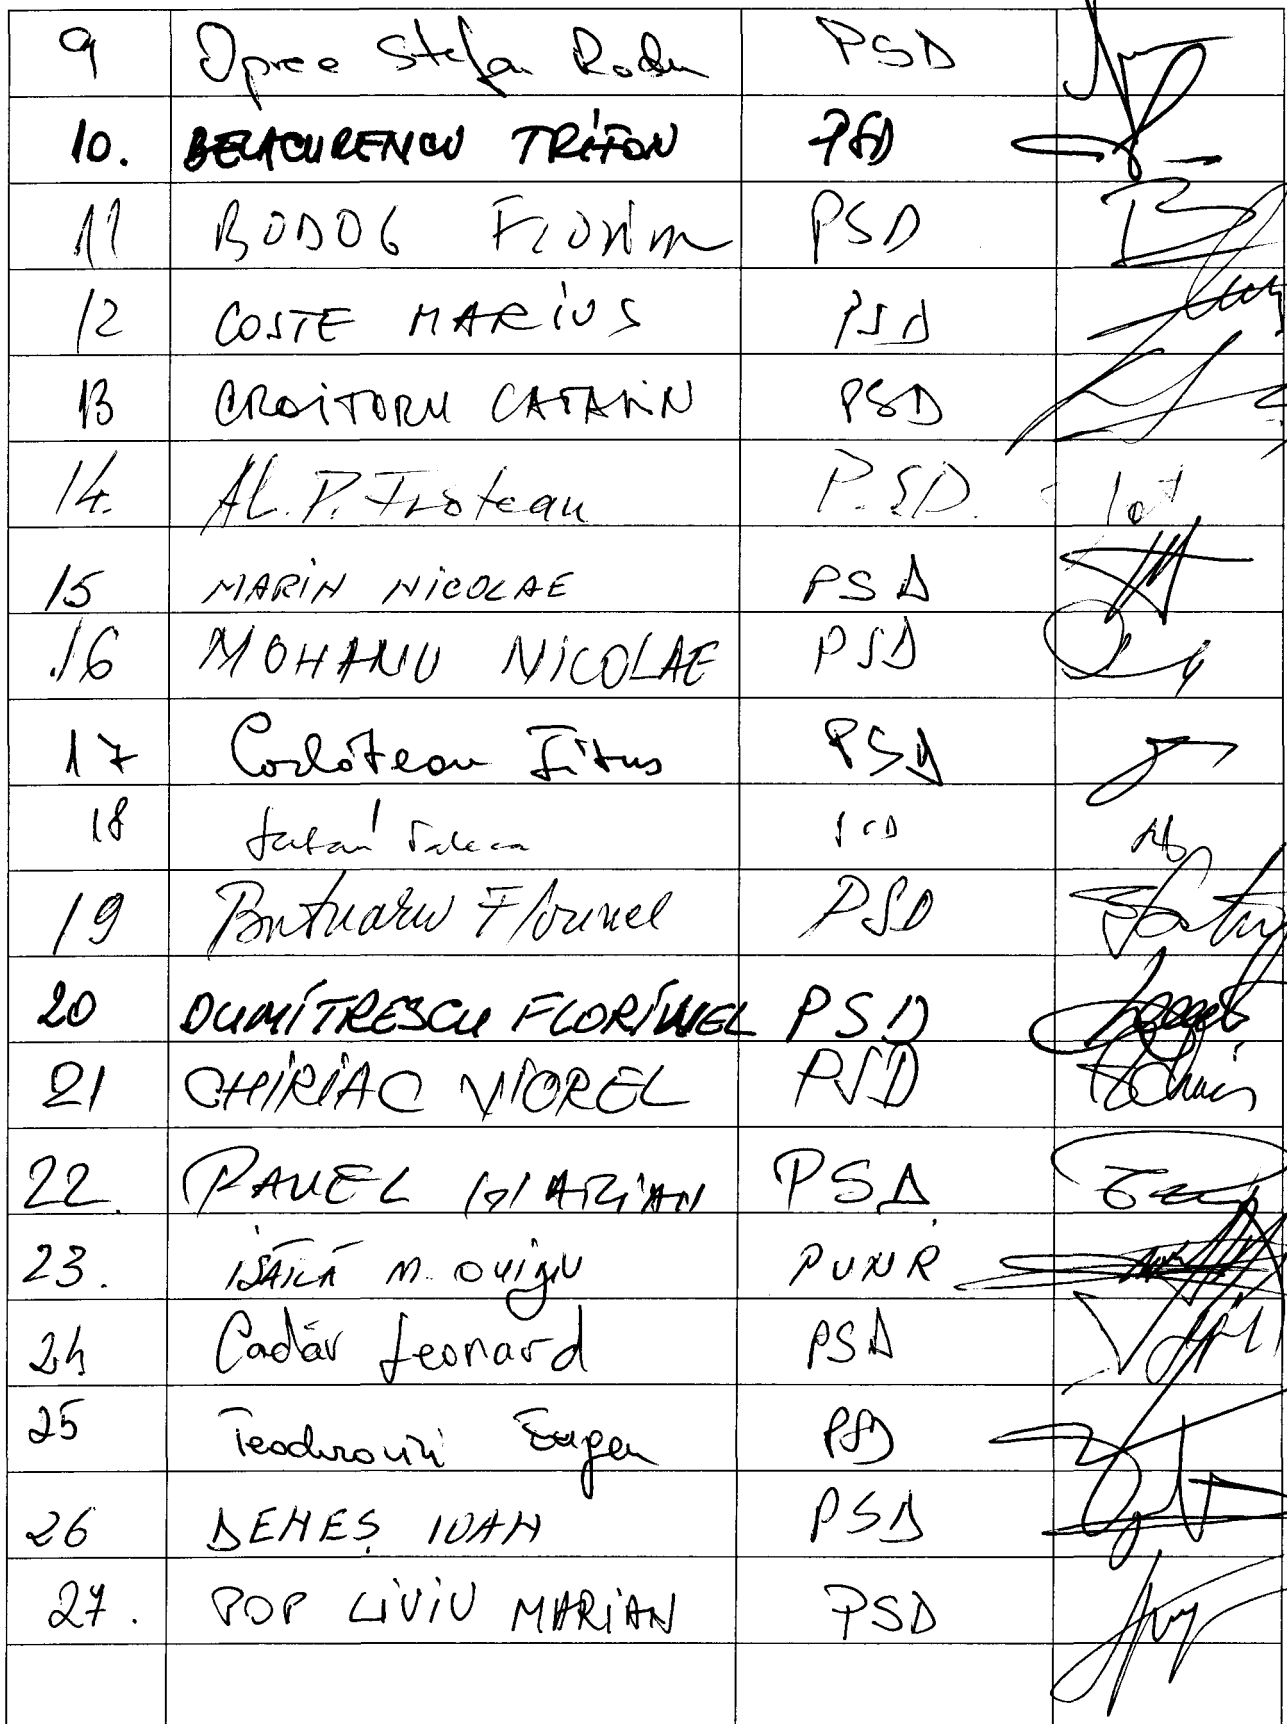 9 Oprea Stefan Radu PSD
10. BELACURENCU TRIFON PSD
11 BODOG FLORIN PSD
12 COSTE MARIUS PSD
13 CROITORU CATALIN PSD
14. AL. P. Frăteanu P.SD.
15 MARIN NICOLAE PSD
16 MOHANU NICOLAE PSD
17 Corlățean Titus PSD
18
19 Butnaru Florinel PSD
20 DUMITRESCU FLORINEL PSD
21 CHIRIAC VIOREL PSD
22. PAVEL MARIAN PSD
23. ISĂILĂ M. OVIDIU PUNR
24 Cadăr Leonard PSD
25 Teodorovici Eugen PSD
26 DENEȘ IOAN PSD
27. POP LIVIU MARIAN PSD